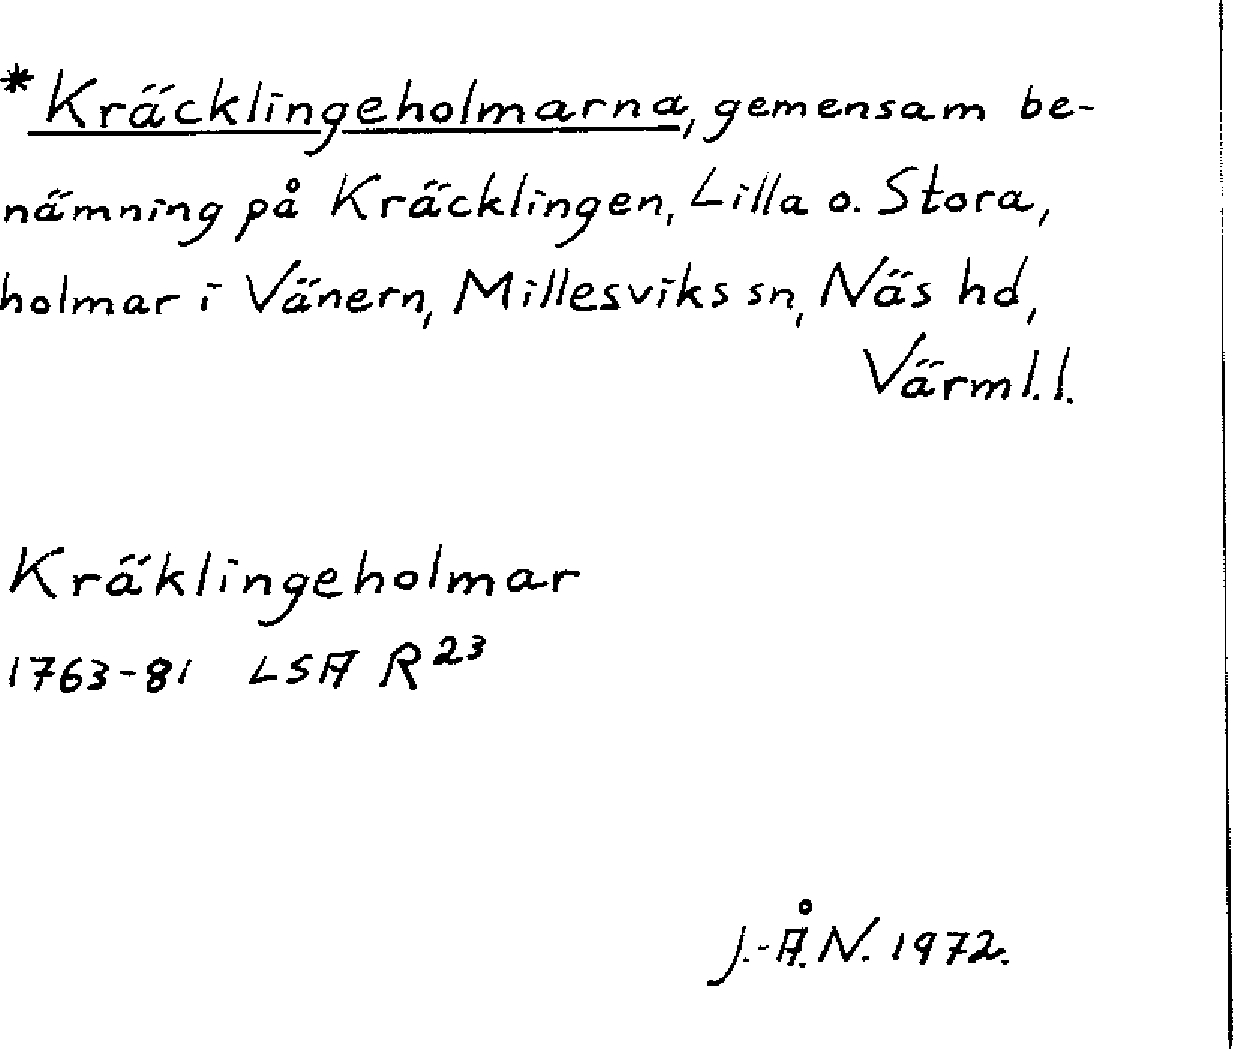 *Kräcklingeholmarna, gemensam be-
nämning på Kräcklingen, Lilla o. Stora,
holmar i Vänern, Millesviks sn, Näs hd,
Värml. l.
Kräklingeholmar
1763-81 LSA R²³
J.-Å. N. 1972.